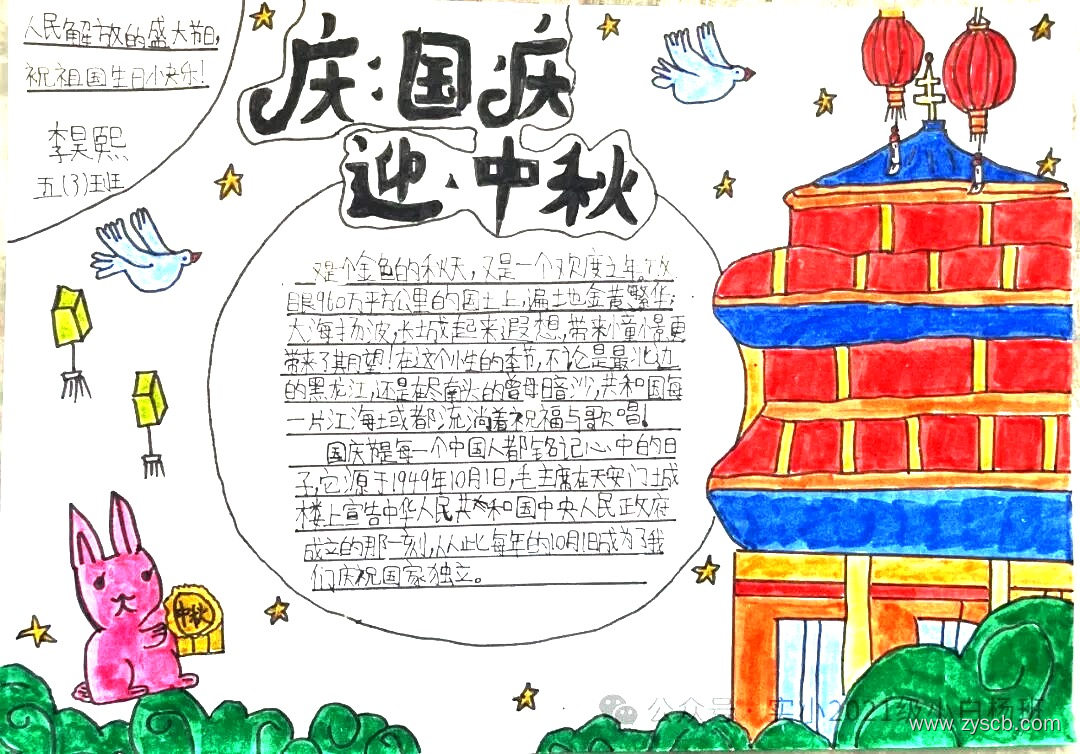 人民解放的盛大节日,
祝祖国生日快乐!
李昊熙
五(3)班
庆国庆
迎中秋
又是个金色的秋天,又是一个欢度之年。放
目眼960万平方公里的国土上,遍地金黄繁华;
大海扬波,长城起来遐想,带来憧憬,更
带来了期望!在这个个性的季节,不论是最北边
的黑龙江,还是在尽南头的曾母暗沙,共和国每
一片江海域都流淌着祝福与歌唱!
国庆节是每一个中国人都铭记心中的日
子,它源于1949年10月1日,毛主席在天安门城
楼上宣告中华人民共和国中央人民政府
成立的那一刻,从此每年的10月1日成为了我
们庆祝国家独立。
中秋
公众号·实小2021级小白杨班
www.zyscb.com